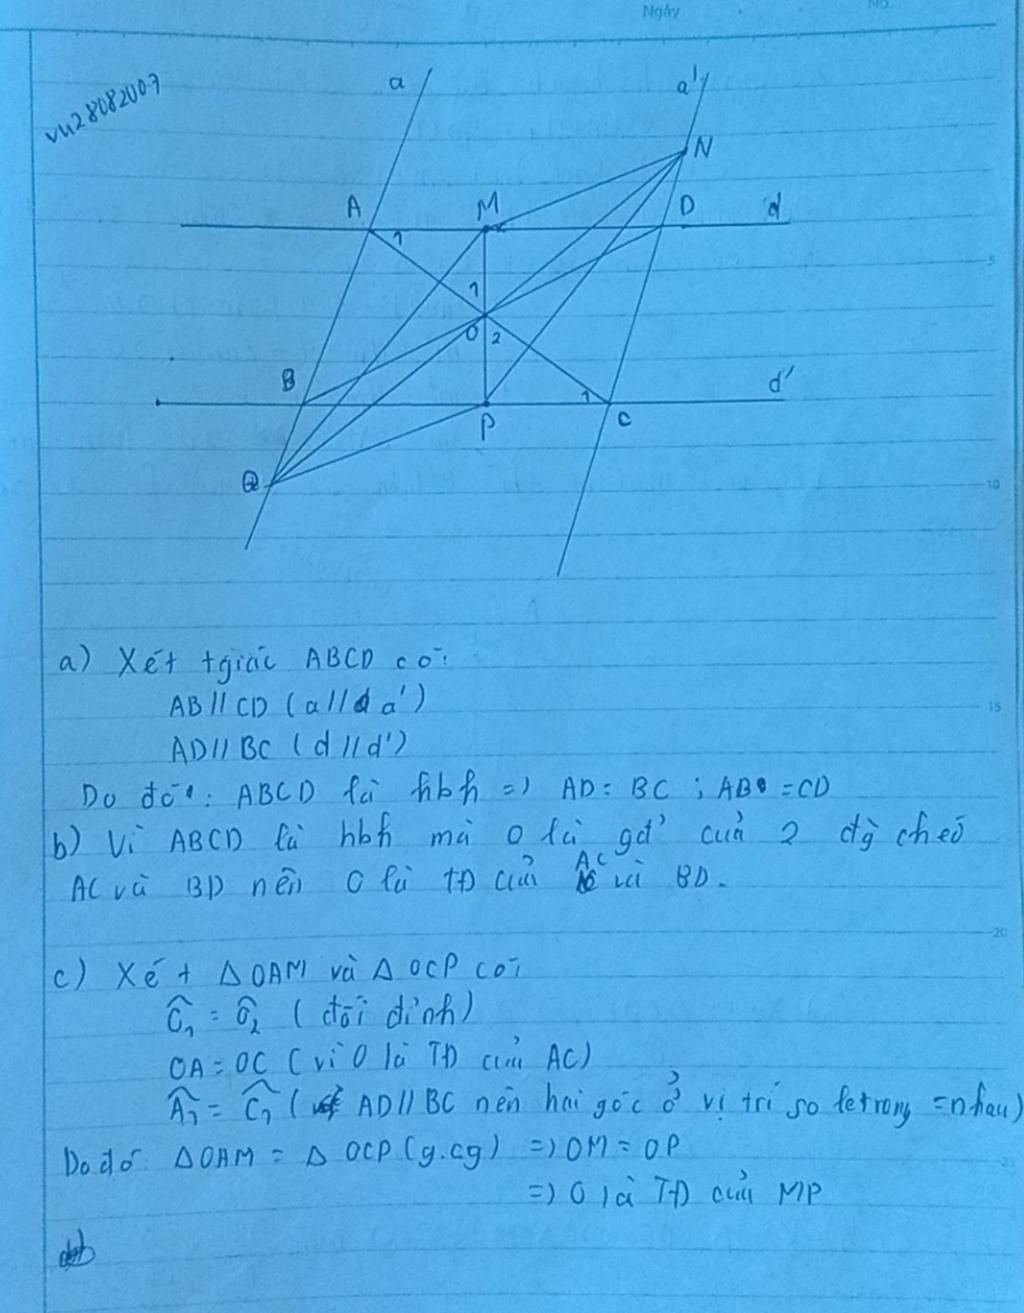 Ngày
No.
vu28082007
a
a'
N
A
M
D
d
1
1
O
2
B
1
d'
P
C
Q
5
10
15
20
a) Xét tgiác ABCD có:
AB // CD (a // a')
AD // BC (d // d')
Do đó: ABCD là hbh => AD = BC ; AB = CD
b) Vì ABCD là hbh mà O là gđ' của 2 đg chéo
AC và BD nên O là TĐ của AC và BD.
c) Xét Δ OAM và Δ OCP có:
Ô1 = Ô2 (đối đỉnh)
OA = OC (vì O là TĐ của AC)
Â1 = Ĉ1 (AD // BC nên hai góc ở vị trí so le trong = nhau)
Do đó: Δ OAM = Δ OCP (g.cg) => OM = OP
=> O là TĐ của MP